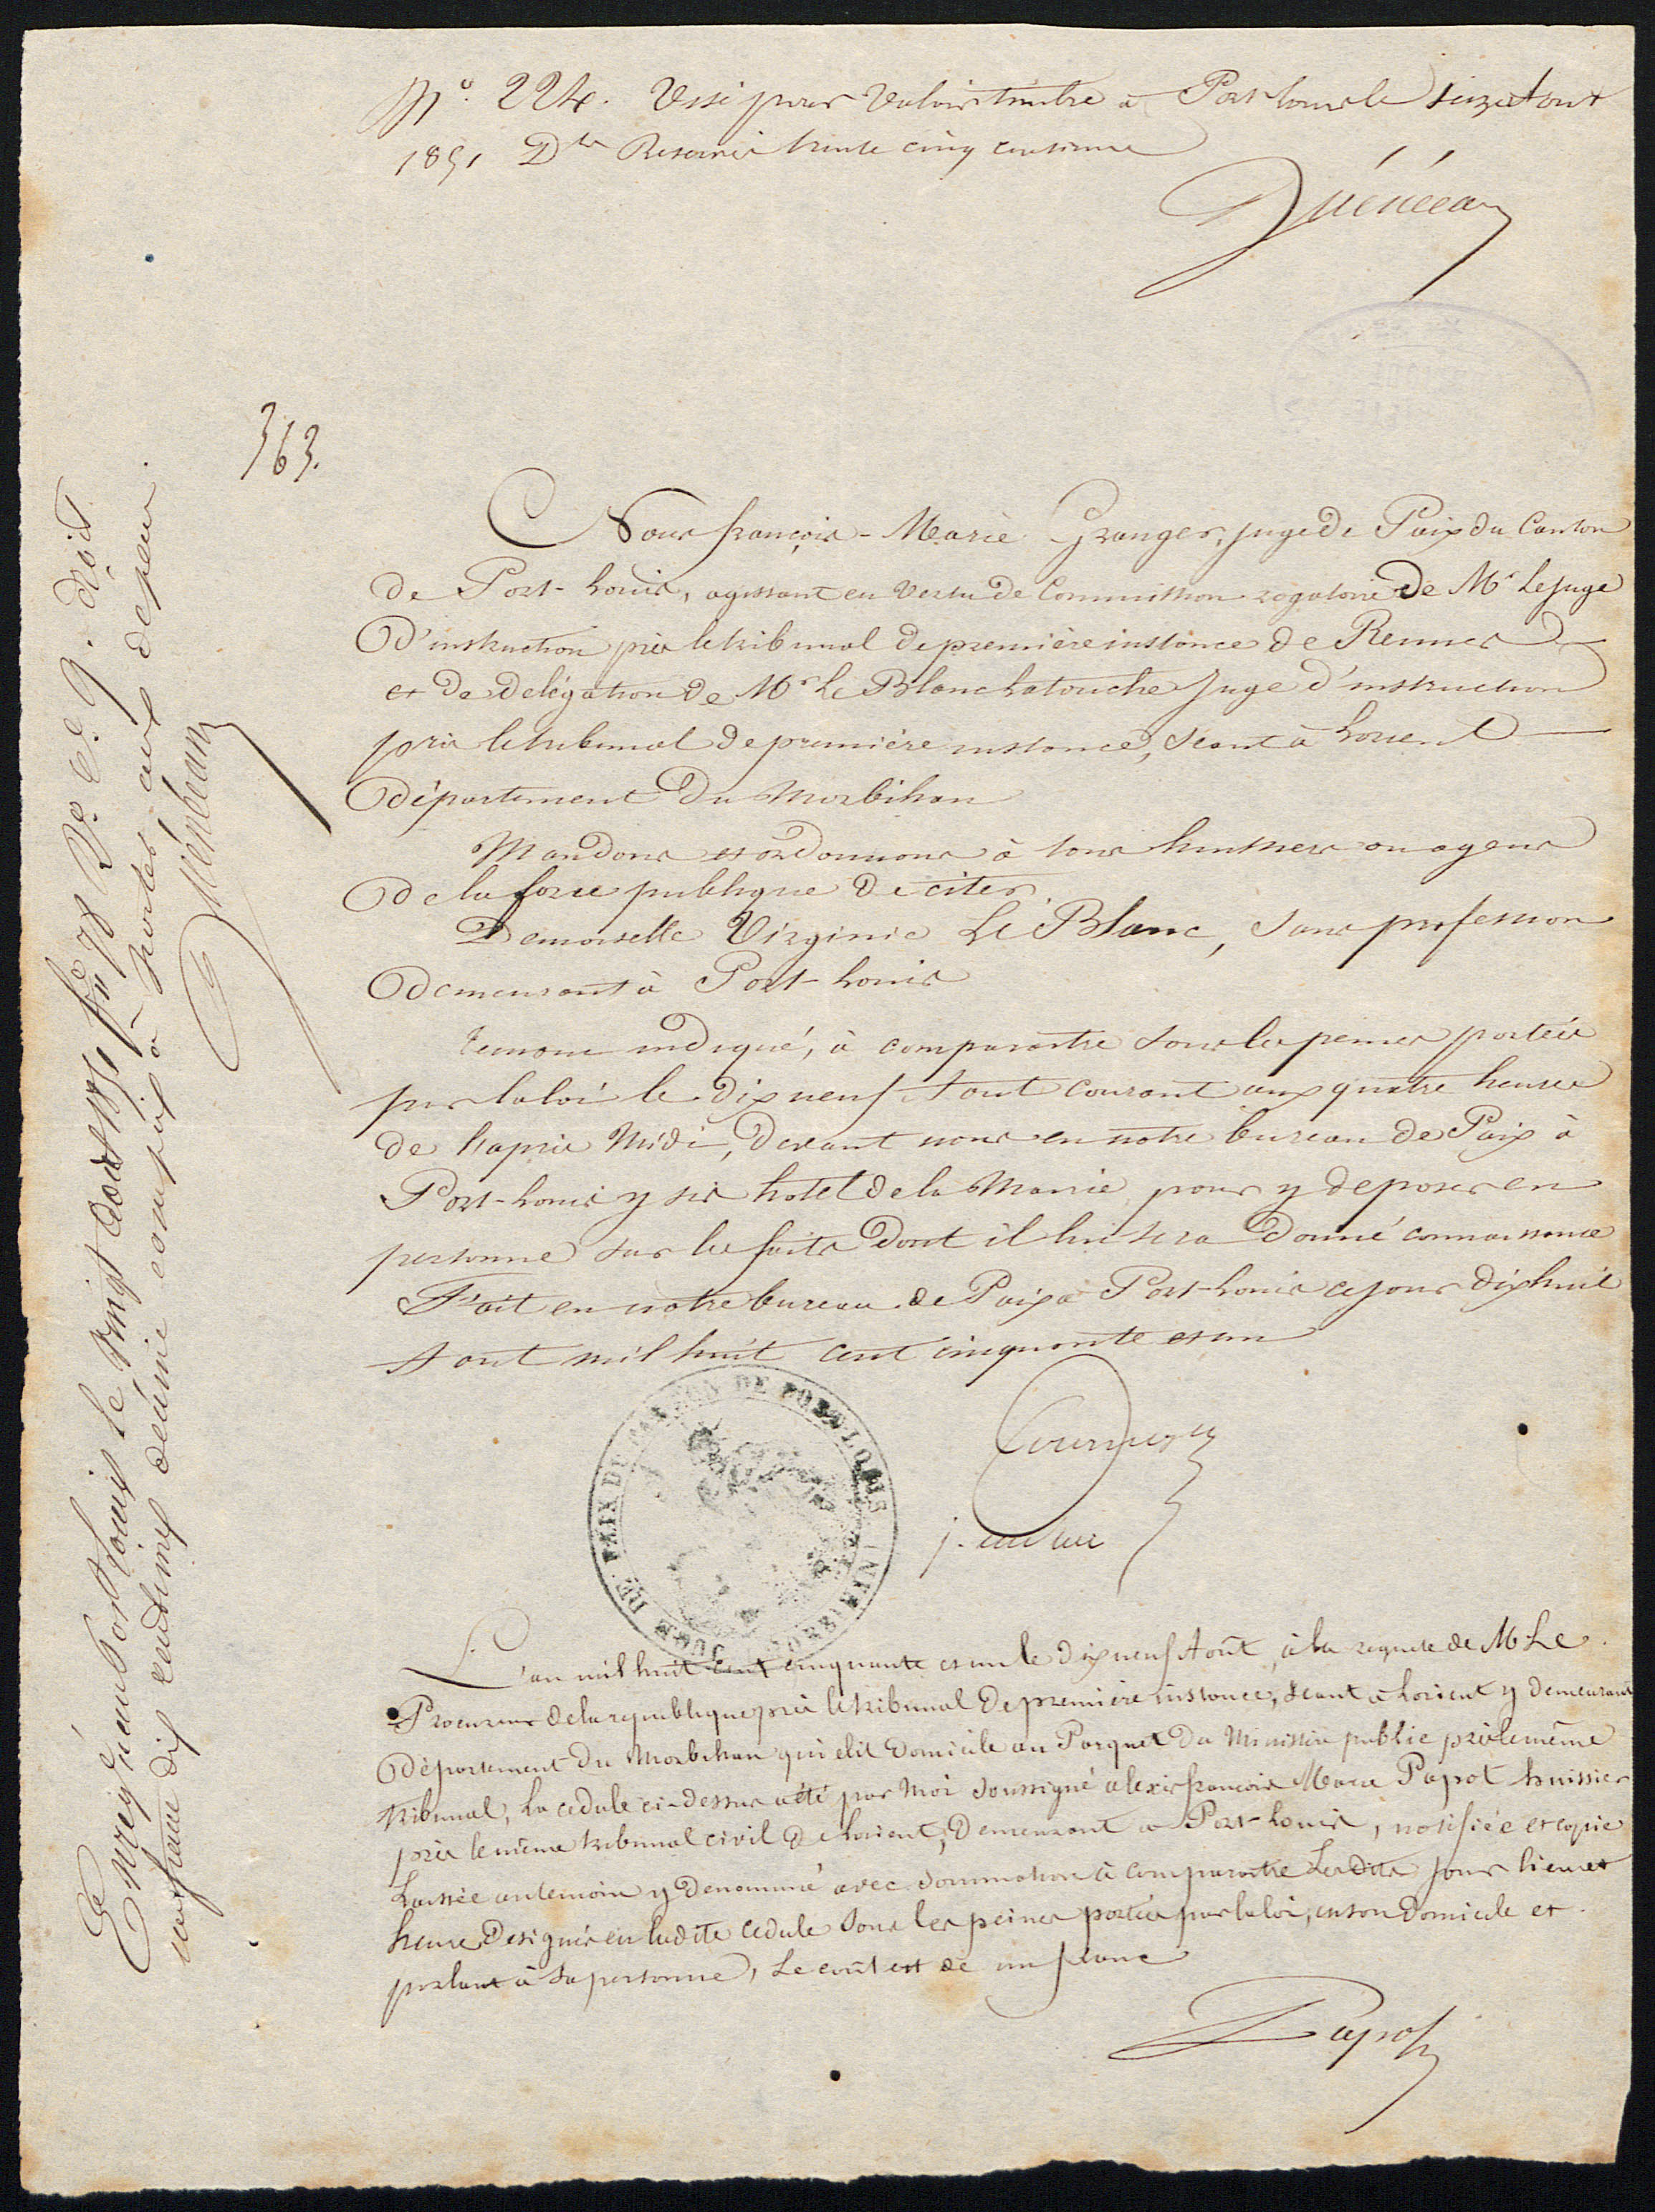 N°. 224. Visé pour valoir timbre a Port louis le seize Aout
1851 Dts Reservés trente cinq centimes
363.
Nous françois-Marie Granger, juge de Paix du Canton
de Port-Louis, agissant en vertu de Commission rogatoire de Mr Le juge
D'instruction près le tribunal de première instance de Rennes
et de delégation de Mr Le Blanc Latouche Juge d'instruction
près le tribunal de première instance, séant à Lorient
département du Morbihan
Mandons et ordonnons à tous huissiers ou agens
de la force publique de citer
Demoiselle Virginie Le Blanc, sans profession
demeurant à Port-Louis
temoin indiqué, à comparaitre sous les peines portées
par la loi le dix neuf Aout courant aux quatre heures
de l'après Midi, devant nous en notre bureau de Paix à
Port-Louis y sis hotel de la Mairie pour y deposer en
personne sur les faits dont il lui sera donné connaissance
Fait en notre bureau de Paix à Port-Louis ce jour dix huit
Aout mil huit cent cinquante et un
JUGE DE PAIX DU CANTON DE PORT-LOUIS
L'an mil huit cent cinquante et un le dix neuf Août, à la requete de M Le
Procureur de la republique près le tribunal de première instance, séant à Lorient y demeurant
département du Morbihan qui elit domicile au Parquet du Ministère public près le même
tribunal, la cedule ci-dessus a été par moi soussigné alexis françois Marie Papot huissier
près le même tribunal civil de Lorient, demeurant a Port-Louis, notifiée et copie
laissée au temoin y denommé avec sommation à comparaitre lesdits jour lieu et
heure designés en ladite cedule sous les peines portées par la loi, en son domicile et
parlant à sa personne, Le coût est de un franc
Papot
Enregé au Port Louis le vingt août 1851 fo 78 Ro Ce 9. droit
un franc dix centimes décime compris à porter aux depens.